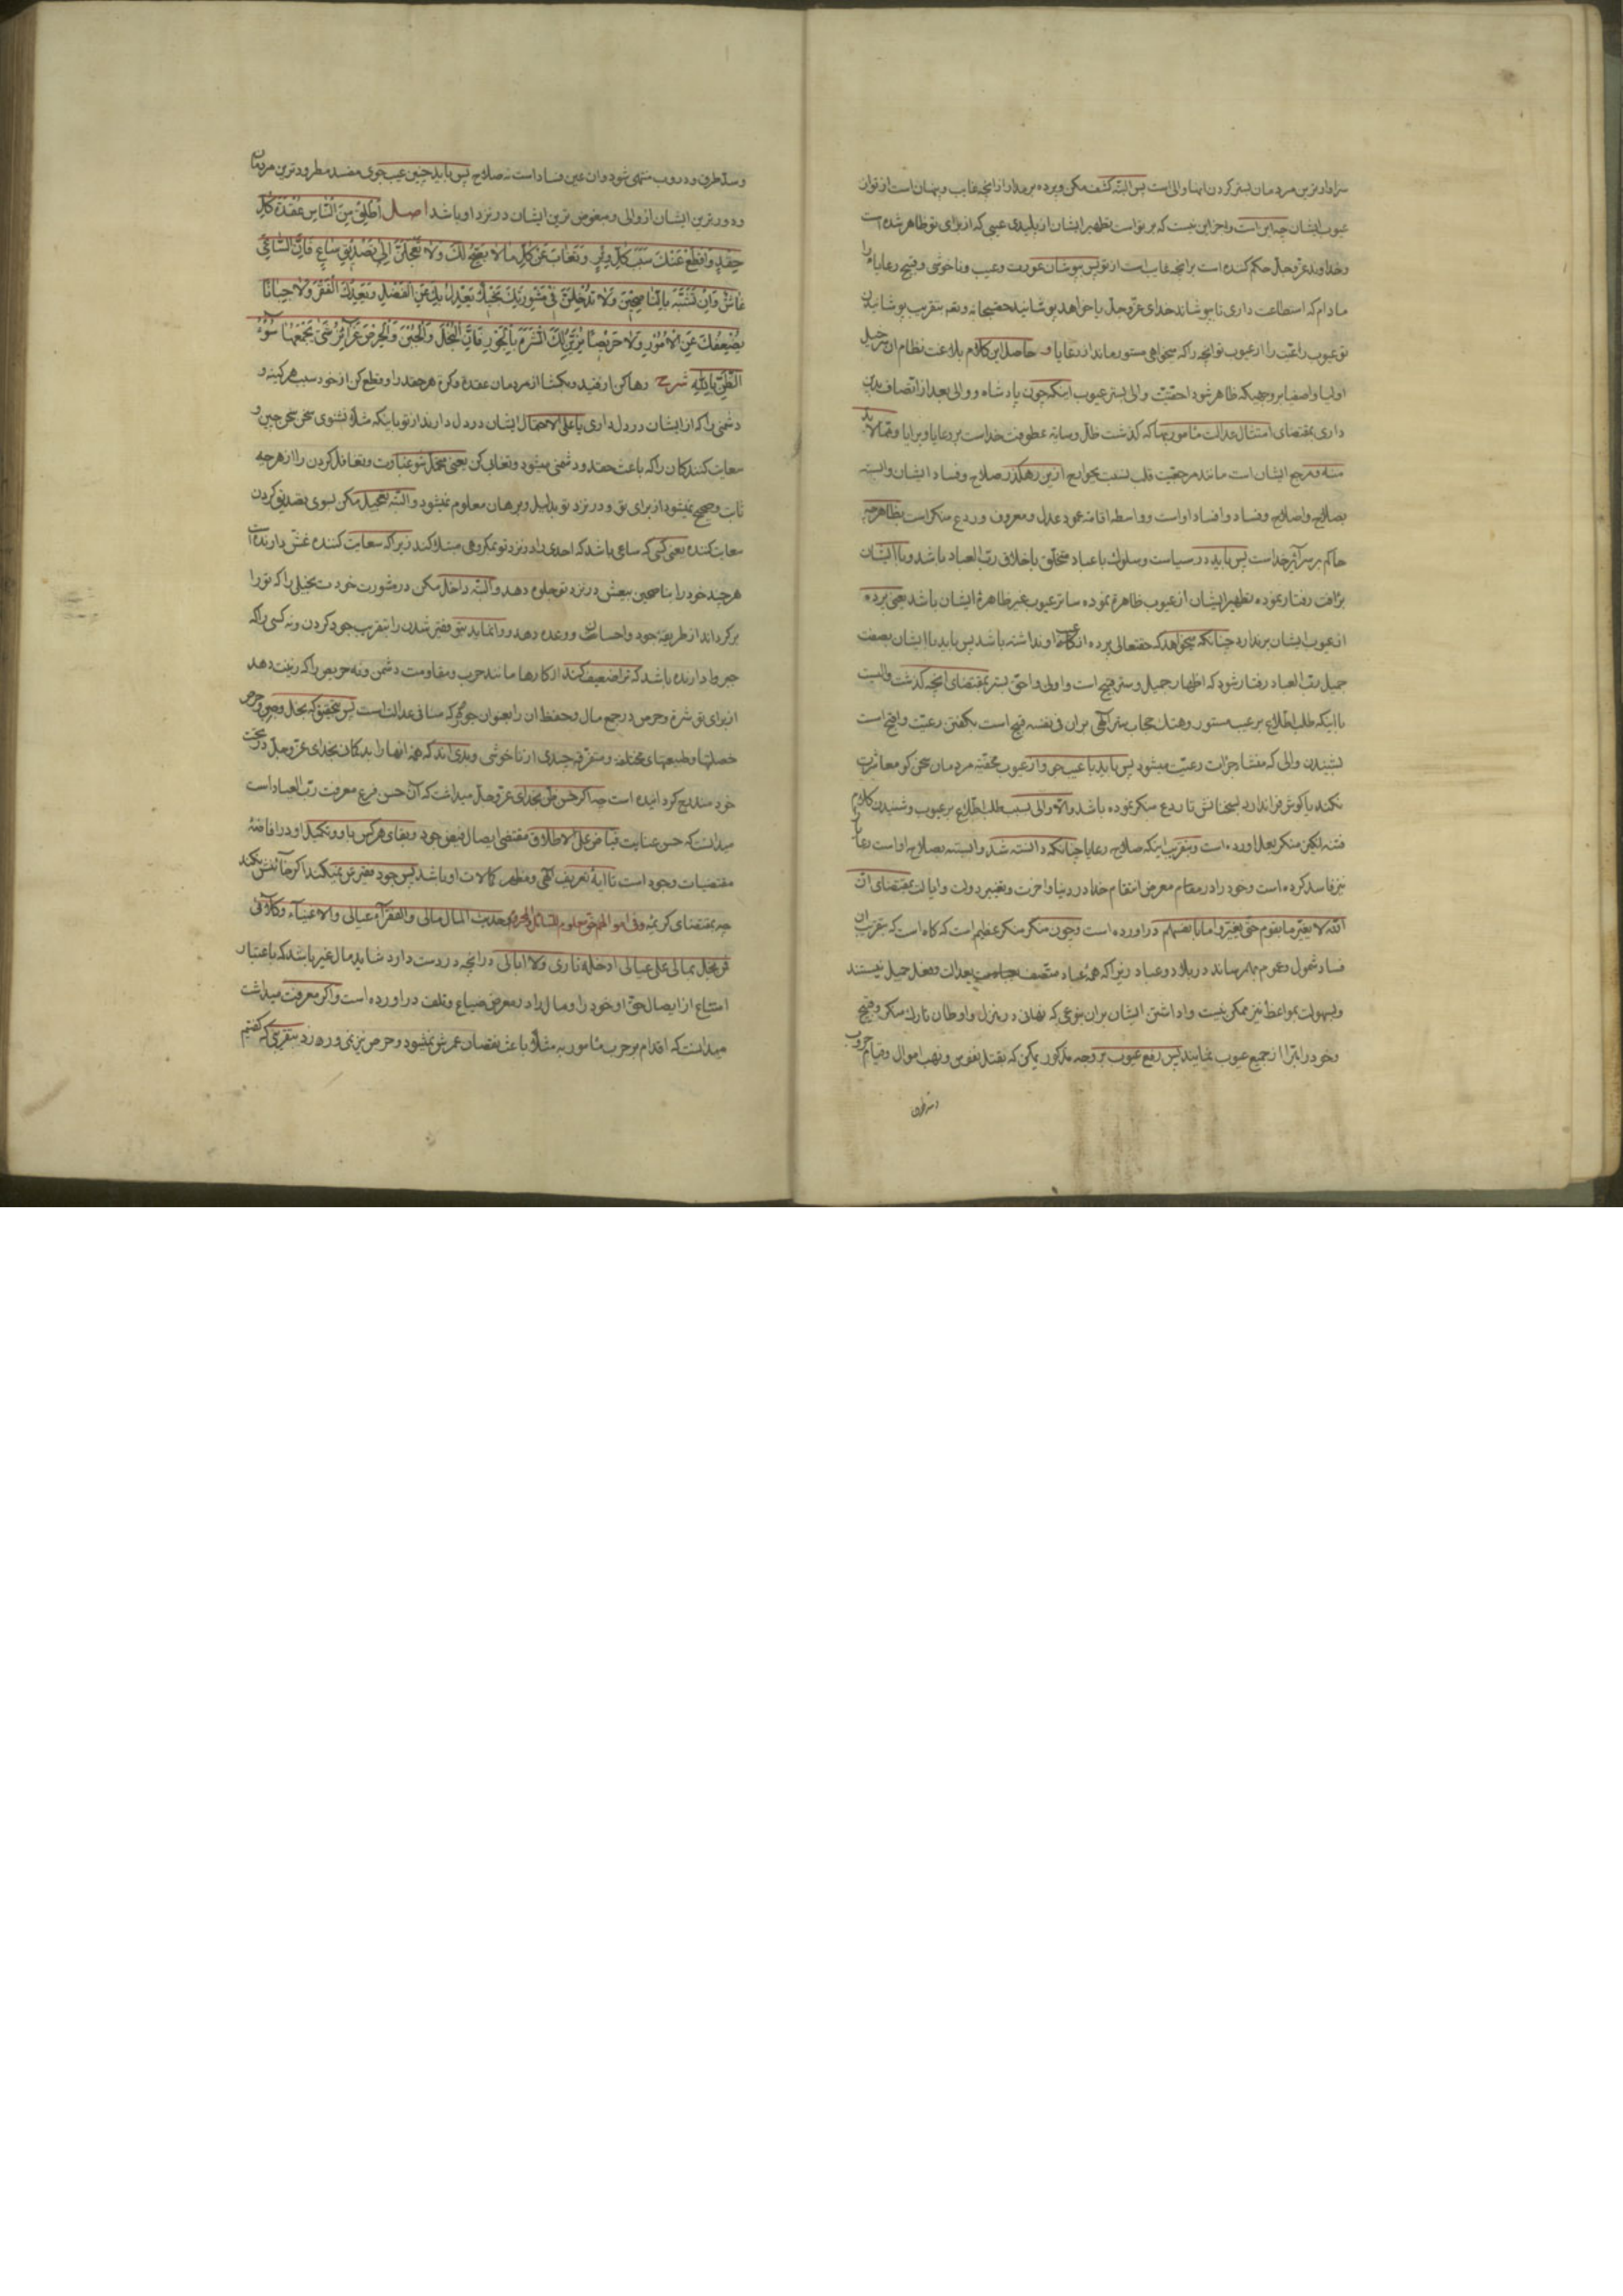 سزاوارترین مردمان بستر کردن انها والی است پس البته کشف مکن و پرده برمدار از انچه غایب و پنهان است از تو از
عیوب ایشان چه این است و جز این نیست که بر تو است تطهیر ایشان از پلیدی عیبی که از برای تو ظاهر شده است
و خداوند عز و جل حکم کننده است بر انچه غایب است از تو پس بپوشان عورت و عیب و ناخوشی و قبیح رعایا را
مادام که استطاعت داری تا بپوشاند خدای عز و جل یا خواهد پوشانید بتقریب پوشانیدن
تو عیوب رعیت را از عیوب تو انچه را که میخواهی مستور ماند از رعایا و حاصل این کلام بلاغت نظام ان سرخیل
اولیا و اصفیا بر وجهیکه ظاهر شود احقیت والی بستر عیوب اینکه چون پادشاه و والی بعد از اتصاف بدین
داری بمقتضای امتثال عدالت مامور بها که گذشت ظل و سایه عطوفت خداست بر رعایا و برایا و
منه و مرجع ایشان است مانند مرجعیت قلب نسبت بجوارح ازین رهگذر صلاح و فساد ایشان وابسته
بصلاح و اصلاح و فساد و افساد اوست و واسطه اقامه عمود عدل و معروف و ردع منکر است بظاهر چه
حاکم بر سرآئر خداست پس باید در سیاست و سلوک با عباد متخلق باخلاق رب العباد باشد و با ایشان
برافت رفتار نموده تطهیر ایشان از عیوب ظاهره نموده ساتر عیوب غیر ظاهرهٔ ایشان باشد یعنی پرده
از عیوب ایشان برندارد چنانکه میخواهد که حقتعالی پرده از عیب او نداشته باشد پس باید با ایشان بصفت
جمیل رب العباد رفتار شود که اظهار جمیل و ستر قبیح است و اولی و احق بستر بمقتضای انچه گذشت والیست
با اینکه طلب اطلاع بر عیب مستور و هتک حجاب ستر الهی بران فی نفسه قبیح است بگفتن رعیت و اقبح است
بشنیدن والی که منشا جرات رعیت میشود پس باید با عیب جو و از عیوب مخفیه مردمان سخن گو معاشرت
نکند یا گوش فرا ندارد بسخنانش تا ردع منکر نموده باشد والا والی بسبب طلب اطلاع بر عیوب و شنیدن کلام
فتنه انگیز منکر بعمل اورده است و بتقریب اینکه صلاح رعایا چنانکه دانسته شد وابسته بصلاح اوست رعایا
نیز فاسد کرده است و خود را در مقام معرض انتقام خدا در دنیا و اخرت و تغییر دولت و ایالت بمقتضای ان
الله لا یغیر ما بقوم حتی یغیروا ما بانفسهم در اورده است و چون منکر منکر عظیم است که گاه است که بتقریب ان
فساد شمول و عموم بهم رساند در بلاد و عباد زیرا که همهٔ عباد متصف بعدالت و فعل جمیل نیستند
و بسهولت بمواعظ نیز ممکن نیست و اداشتن ایشان بران بنوعی که نهانی در منزل و اوطان تارک منکر و قبیح
و خود را مبرا از جمیع عیوب نمایند پس رفع عیوب بر وجه مذکور یمکن که بقتل نفوس و نهب اموال و قیام حروب
و سد طرق و دروب منتهی شود و ان عین فساد است نه صلاح پس باید چنین عیب جوی مفسد مطرودترین مردمان
و دورترین ایشان از والی و مبغوض ترین ایشان در نزد او باشد اصل اَطْلِقْ مِنَ النّاسِ عُقْدَةَ كُلِّ
حِقْدٍ وَاقْطَعْ عَنْكَ سَبَبَ كُلِّ وِتْرٍ وَتَغابَ عَنْ كُلِّ مالا يَصِحُّ لَكَ وَلا تَعْجَلَنَّ اِلى تَصْديقِ ساعٍ فَاِنَّ السّاعِىَ
غاشٌّ وَاِنْ تَشَبَّهَ بِالنّاصِحينَ وَلا تُدْخِلَنَّ فى مَشْوَرَتِكَ بَخيلًا يَعْدِلُ بِكَ عَنِ الْفَضْلِ وَيَعِدُكَ الْفَقْرَ وَلا جَبانًا
يُضْعِفُكَ عَنِ الْاُمُورِ وَلا حَريصًا يُزَيِّنُ لَكَ الشَّرَهَ بِالْجَوْرِ فَاِنَّ الْبُخْلَ وَالْجُبْنَ وَالْحِرْصَ غَرآئِزُ شَتّى يَجْمَعُها سُوءُ
الظَّنِّ بِاللهِ شرح رها کن از قید و بگشا از مردمان عقده و گره هر حقد را و قطع کن از خود سبب هر کینه و
دشمنی را که از ایشان در دل داری یا علی الاحتمال ایشان در دل دارند از تو باینکه مثلا نشنوی سخن سخن چین و
سعایت کنندگان را که باعث حقد و دشمنی میشود و تغابی کن یعنی متحمل شو غباوت و تغافل کردن را از هر چه
ثابت و صحیح نمیشود از برای تو و در نزد تو بدلیل و برهان معلوم نمیشود و البته تعجیل مکن بسوی تصدیق کردن
سعایت کننده یعنی کسی که ساعی باشد که احدی را در نزد تو بمکروهی مبتلا کند زیرا که سعایت کننده غش دارنده است
هر چند خود را بناصحین در نزد تو جلوه دهد و البته داخل مکن در مشورت خودت بخیلی را که تو را
برگرداند از طریقهٔ جود و احسان و وعده دهد و وانماید بتو فقیر شدن را بتقریب جود کردن و نه کسی را که
جبن دارنده باشد که ترا ضعیف کند از کارها مانند حرب و مقاومت دشمن و نه حریص را که زینت دهد
از برای تو شره و حرص در جمع مال و حفظ ان را بعنوان جور که منافی عدالت است پس بتحقیق که بخل و جبن و حرص
خصلتها و طبیعتهای مختلفه و متفرقه چندی از ناخوشی و بدی اند که همهٔ انها را بد گمان بخدای عز و جل در تحت
خود مندرج گردانیده است چه اگر حسن ظن بخدای عز و جل میداشت که آن حسن فرع معرفت رب العباد است
میدانست که حسن عنایت فیاض علی الاطلاق مقتضی ایصال فیض جود و بقای هر کس باو و تکمیل او در افاضهٔ
مقتضیات وجود است تا آیهٔ تعریف الهی و مظهر کمالات او باشد پس جود فقیرش نمیکند اگر خائنش نکند
چه بمقتضای کریمهٔ وفی اموالهم حق معلوم للسائل والمحروم و حدیث المال مالی والفقرآء عیالی والاغنیآء وکلائی
فمن بخل بمالی علی عیالی ادخله ناری ولا ابالی در انچه در دست دارد شاید مال غیر باشد که باعتبار
امتناع از ایصال حق او خود را و مال را در معرض ضیاع و تلف در اورده است و اگر معرفت میداشت
میدانست که اقدام بر حرب مامور به مثلا باعث نقصان عمرش نمیشود و حرص نیز نمی ورزد بتقریبی که گفتیم